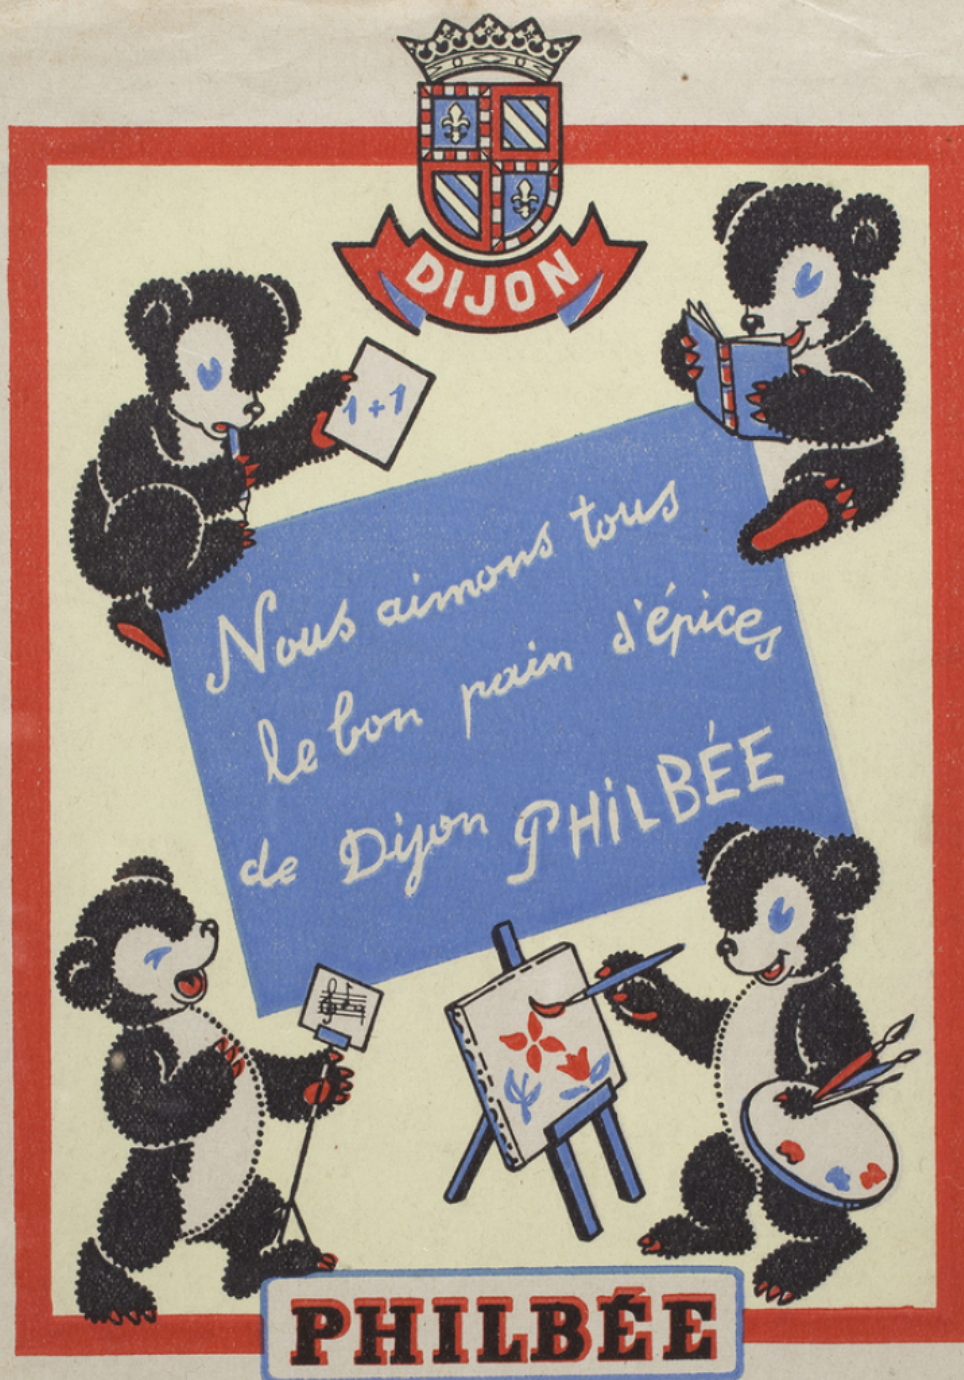 DIJON
1+1
Nous aimons tous
le bon pain d'épices
de Dijon PHiLBÉE
PHILBÉE